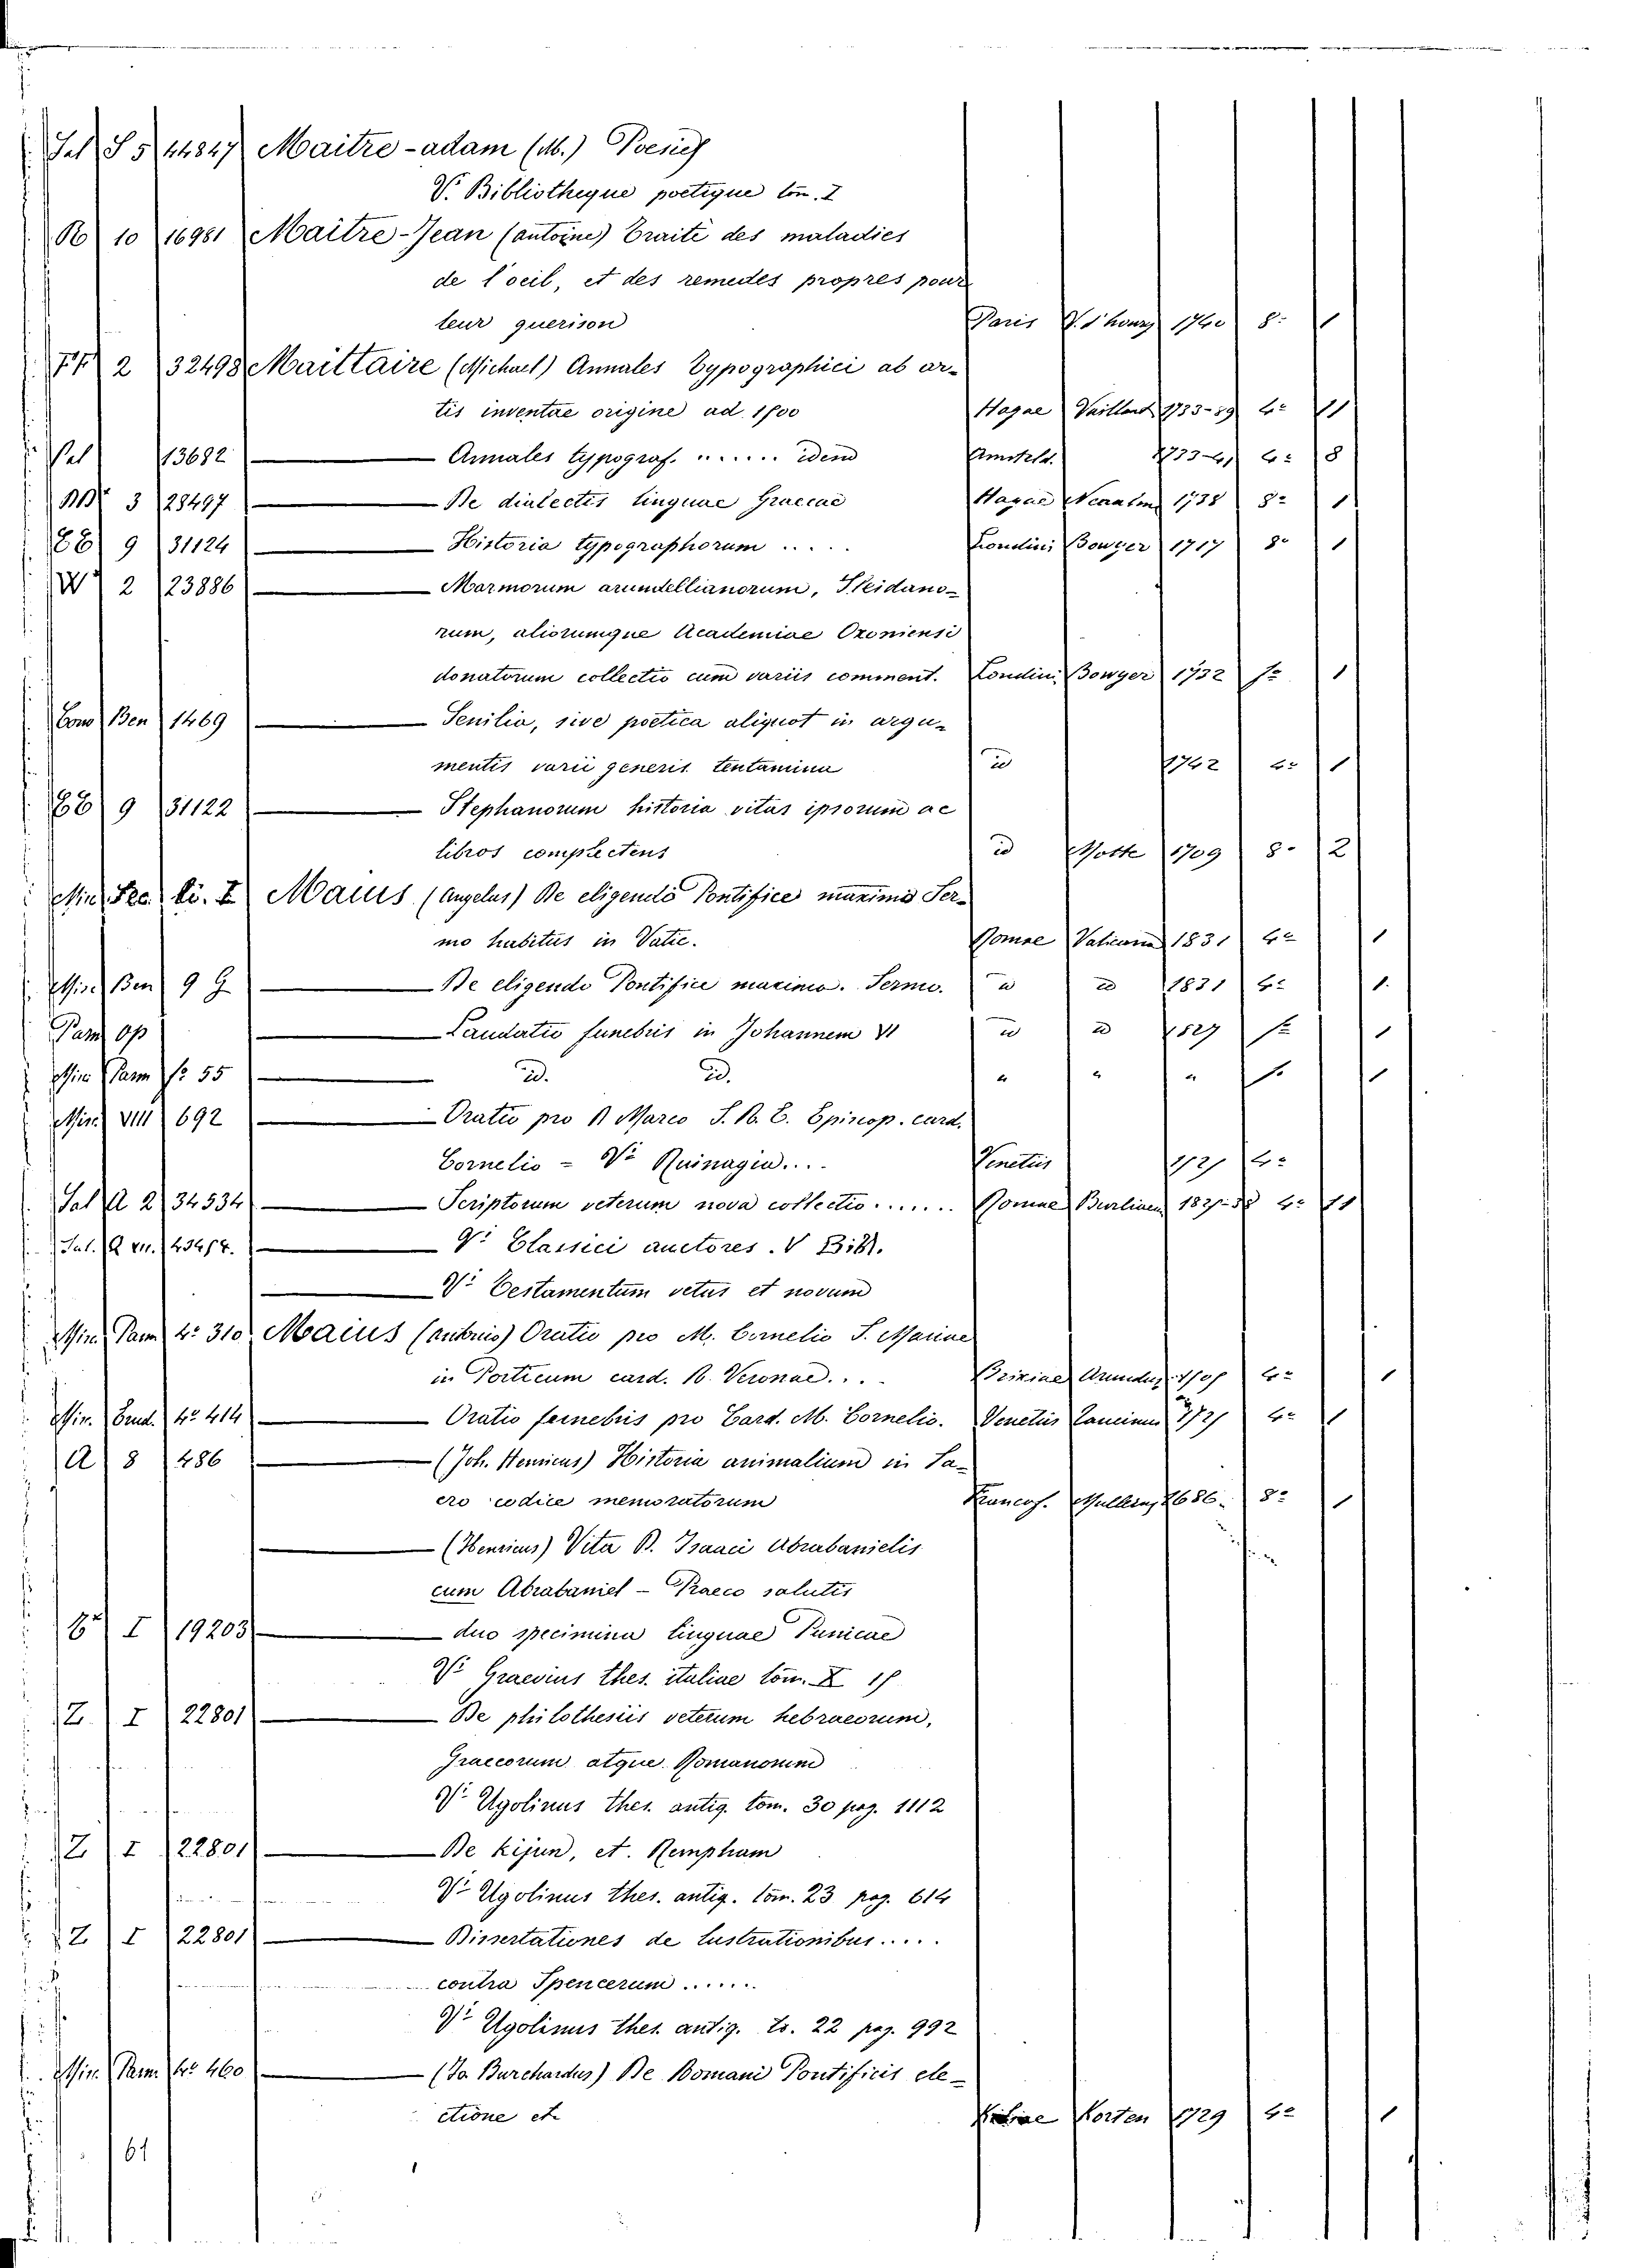 Sal S 5 44847 Maitre-adam (M.) Poesies
V. Bibliotheque poetique tom. I
R 10 16981 Maitre-Jean (antoine) Traité des maladies
de l'oeil, et des remedes propres pour
leur querison Paris 1740 8º 1
FF 2 32498 Maittaire (Michael) Annales Typographici ab ar-
tis inventae origine ad. 1500 Hagae Vaillant 1733-89 4º 11
Sal 13682 Annales typograf. ...... idem Amstel. 1733-41 4º 8
3 28497 De dialectis linguae Graecae Hagae 1738 8º 1
9 31124 Historia typographorum ..... Londini Bowyer 1717 8º 1
W 2 23886 Marmorum arundellianorum, Sleidano-
rum, aliorumque Academiae Oxoniensi
donatorum collectio cum variis comment. Londini Bowyer 1732 fº 1
Ben 1469 Senilia, sive poetica aliquot in argu-
mentis varii generis tentamina id 1742 4º 1
9 31122 Stephanorum historia vitas ipsorum ac
libros complectens id Motte 1709 8º 2
Maius (Angelus) De eligendo Pontifice maximo Ser-
mo habitus in Vatic. Romae Vaticana 1831 4º 1
Min Ben 9 G De eligendo Pontifice maximo. Sermo. id id 1831 4º 1.
Pam Op Laudatio funebris in Johannem VI id id 1827 fº 1
Min Pam fº 55 id. id. " " " fº 1
Min VIII 692 Oratio pro Marco S. R. E. Episcop. card.
Cornelio = Vº Quinagin.... Venetiis 4º
Sal A 2 34534 Scriptorum veterum nova collectio ....... Romae Burliaei 4º
Sal. Q VII. Vº Classici auctores. V Bibl.
Vº Testamentum vetus et novum
Min Pam 4º 310 Maius (antonio) Oratio pro M. Cornelio S. Mariae
in Porticum card. R. Veronae.... Brixiae 4º 1
Min. 4º 414 Oratio feinebris pro Card. M. Cornelio. Venetiis 4º 1
A 8 486 (Joh. Henricus) Historia animalium in Sa-
cro codice memoratorum Francof. 1686. 8º 1
(Henricus) Vita R. Isaaci Abrabanielis
cum Abrabaniel - Praeco salutis
I 19203 duo specimina linguae Punicae
Vº Graevius thes. italiae tom. X 15
Z I 22801 De philothesiis veterum hebraeorum,
Graecorum atque Romanorum
Vº Ugolinus thes. antiq. tom. 30 pag. 1112
Z I 22801 De kijun, et. Rempham
Vº Ugolinus thes. antiq. tom. 23 pag. 614
Z I 22801 Dissertationes de lustrationibus.....
contra Spencerum ......
Vº Ugolinus thes. antiq. to. 22 pag. 992
Min. Pam. 4º 460 (Jo. Burchardus) De Romani Pontificis ele-
ctione et Korten 1729 4º 1
61